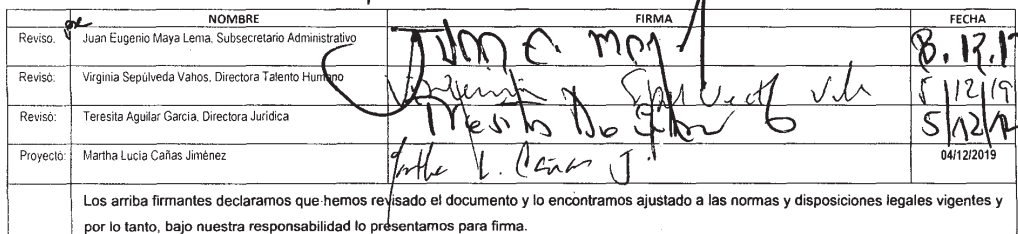 NOMBRE FIRMA FECHA
Reviso. Juan Eugenio Maya Lema, Subsecretario Administrativo Juan E. May
Revisó: Virginia Sepúlveda Vahos, Directora Talento Humano Virginia 5/12/19
Revisó: Teresita Aguilar García, Directora Jurídica 5/12/
Proyectó: Martha Lucía Cañas Jiménez Martha L. Cañas J. 04/12/2019
Los arriba firmantes declaramos que hemos revisado el documento y lo encontramos ajustado a las normas y disposiciones legales vigentes y
por lo tanto, bajo nuestra responsabilidad lo presentamos para firma.